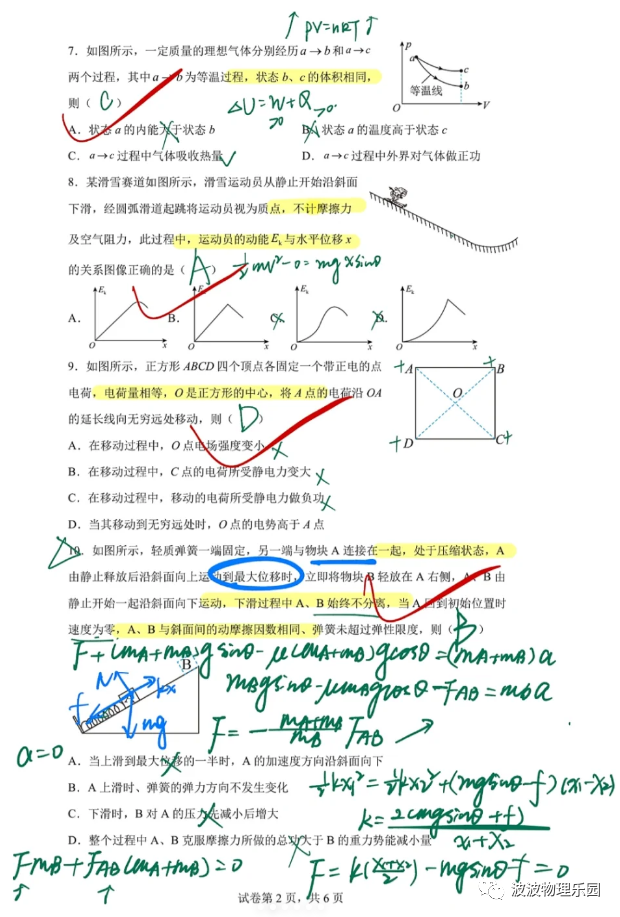 ↑ PV=nRT↑
7. 如图所示，一定质量的理想气体分别经历 a→b 和 a→c
两个过程，其中 a→b 为等温过程，状态 b、c 的体积相同，
则（ C ）
△U=W+Q
>0 >0
p a c b 等温线 O V
A. 状态 a 的内能大于状态 b B. 状态 a 的温度高于状态 c
C. a→c 过程中气体吸收热量 D. a→c 过程中外界对气体做正功
8. 某滑雪赛道如图所示，滑雪运动员从静止开始沿斜面
下滑，经圆弧滑道起跳将运动员视为质点，不计摩擦力
及空气阻力，此过程中，运动员的动能 Ek 与水平位移 x
的关系图像正确的是（ A ） ½mv²-0=mgxsinθ
A. Ek O x B. Ek O x C. Ek O x D. Ek O x
9. 如图所示，正方形 ABCD 四个顶点各固定一个带正电的点
电荷，电荷量相等，O 是正方形的中心，将 A 点的电荷沿 OA
的延长线向无穷远处移动，则（ D ）
+A +B O +D C+
A. 在移动过程中，O 点电场强度变小
B. 在移动过程中，C 点的电荷所受静电力变大
C. 在移动过程中，移动的电荷所受静电力做负功
D. 当其移动到无穷远处时，O 点的电势高于 A 点
10. 如图所示，轻质弹簧一端固定，另一端与物块 A 连接在一起，处于压缩状态，A
由静止释放后沿斜面向上运动到最大位移时，立即将物块 B 轻放在 A 右侧，A、B 由
静止开始一起沿斜面向下运动，下滑过程中 A、B 始终不分离，当 A 回到初始位置时
速度为零，A、B 与斜面间的动摩擦因数相同、弹簧未超过弹性限度，则（ B ）
F+(mA+mB)gsinθ-μ(mA+mB)gcosθ=(mA+mB)a
mBgsinθ-μmBgcosθ-FAB=mBa
N kx B f mg
F=-(mA+mB)/mB FAB
a=0
A. 当上滑到最大位移的一半时，A 的加速度方向沿斜面向下
B. A 上滑时、弹簧的弹力方向不发生变化
½kx₁²=½kx₂²+(mgsinθ-f)(x₁-x₂)
C. 下滑时，B 对 A 的压力先减小后增大
k=2(mgsinθ+f)/(x₁+x₂)
D. 整个过程中 A、B 克服摩擦力所做的总功大于 B 的重力势能减小量
FmB+FAB(mA+mB)=0
F=k((x₁+x₂)/2)-mgsinθ-f=0
试卷第 2 页，共 6 页
波波物理乐园